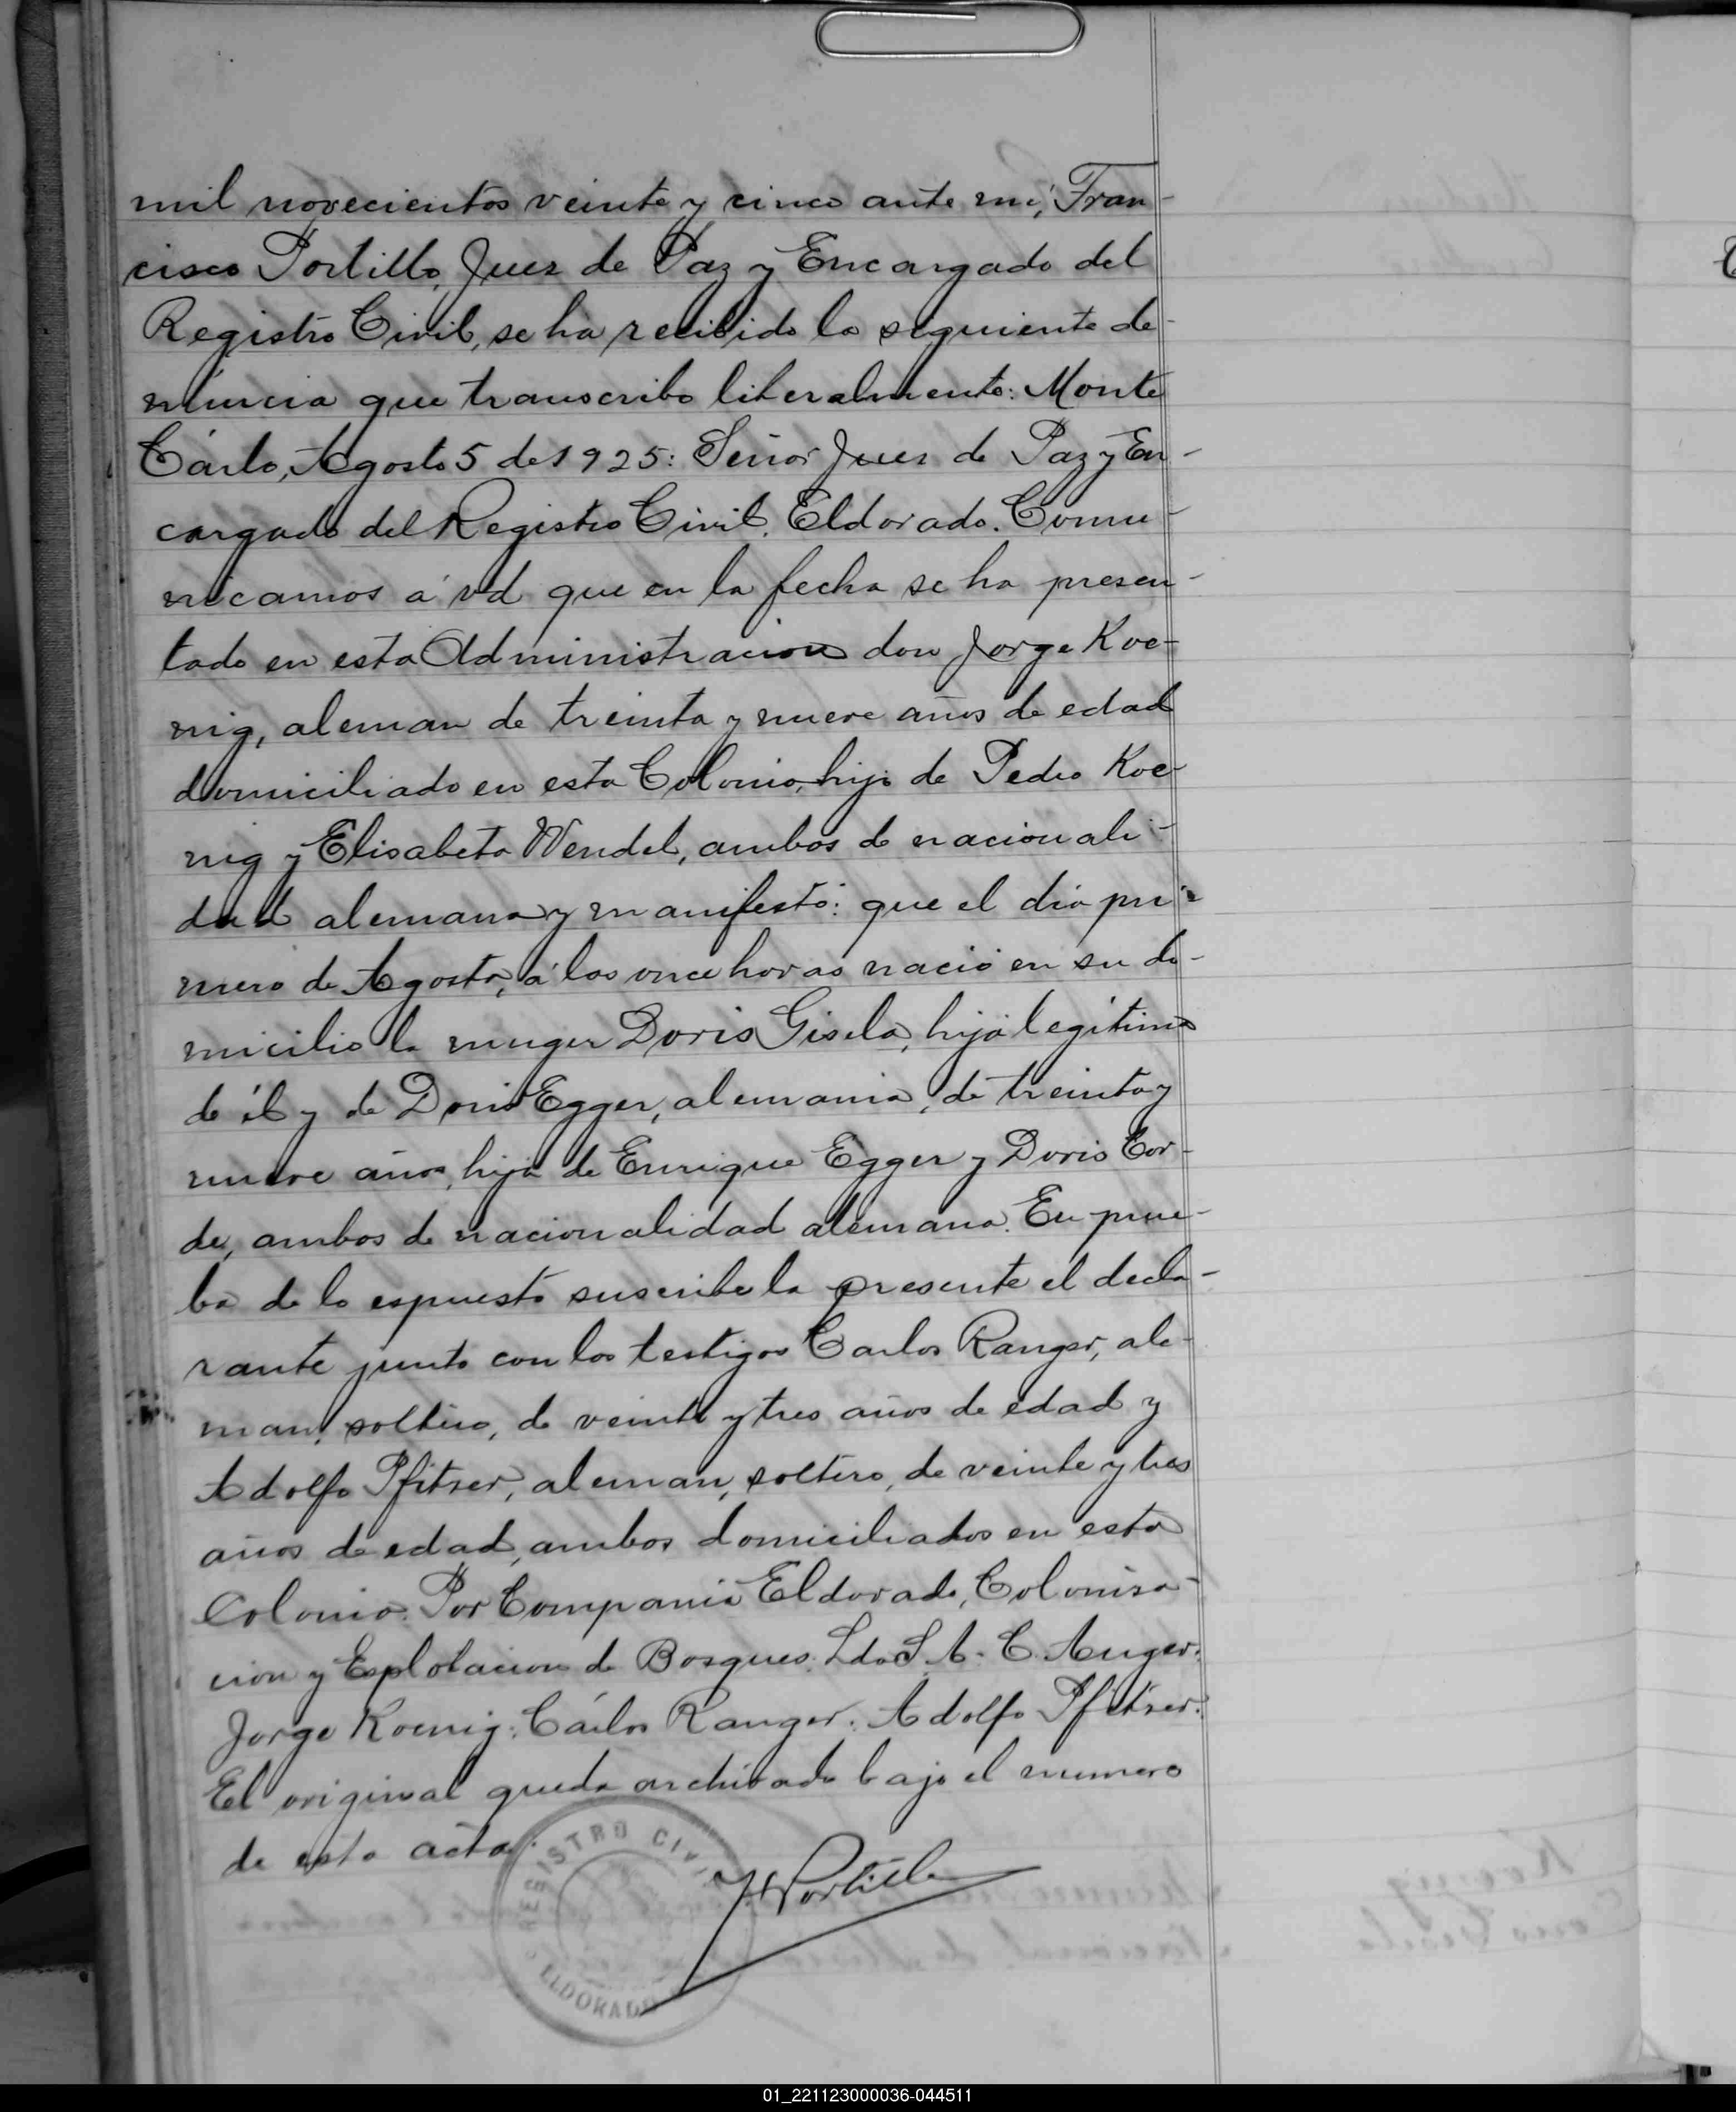 mil novecientos veinte y cinco ante mi, Fran-
cisco Portillo, Juez de Paz y Encargado del
Registro Civil, se ha recibido la siguiente de-
nuncia que transcribo literalmente: Monte
Cárlo, Agosto 5 de 1925: Señor Juez de Paz y En-
cargado del Registro Civil. Eldorado. Comu-
nicamos á vd que en la fecha se ha presen-
tado en esta Administracion don Jorge Koe-
nig, aleman de treinta y nueve años de edad
domiciliado en esta Colonia, hijo de Pedro Koe-
nig y Elisabeta Wendel, ambos de nacionali-
dad alemana y manifestó: que el dia pri-
mero de Agosto, á las once horas nació en su do-
micilio la muger Doris Gisela, hija legítima
de él y de Doris Egger, alemania, de treinta y
nueve años, hija de Enrique Egger y Doris Cor-
de, ambos de nacionalidad alemana. En prue-
ba de lo espuesto suscribe la presente el decla-
rante junto con los testigos Carlos Ranger, ale-
man, soltero, de veinte y tres años de edad y
Adolfo Pfitzer, aleman, soltero, de veinte y tres
años de edad, ambos domiciliados en esta
Colonia. Por Compania Eldorado, Colonisa-
cion y Esplotacion de Bosques. Lda S. A. C. Auger.
Jorge Koenig: Cárlos Ranger: Adolfo Pfitzer.
El original queda archivado bajo el numero
de esta acta.
REGISTRO CIVIL
F. Portillo
ELDORADO
01_221123000036-044511